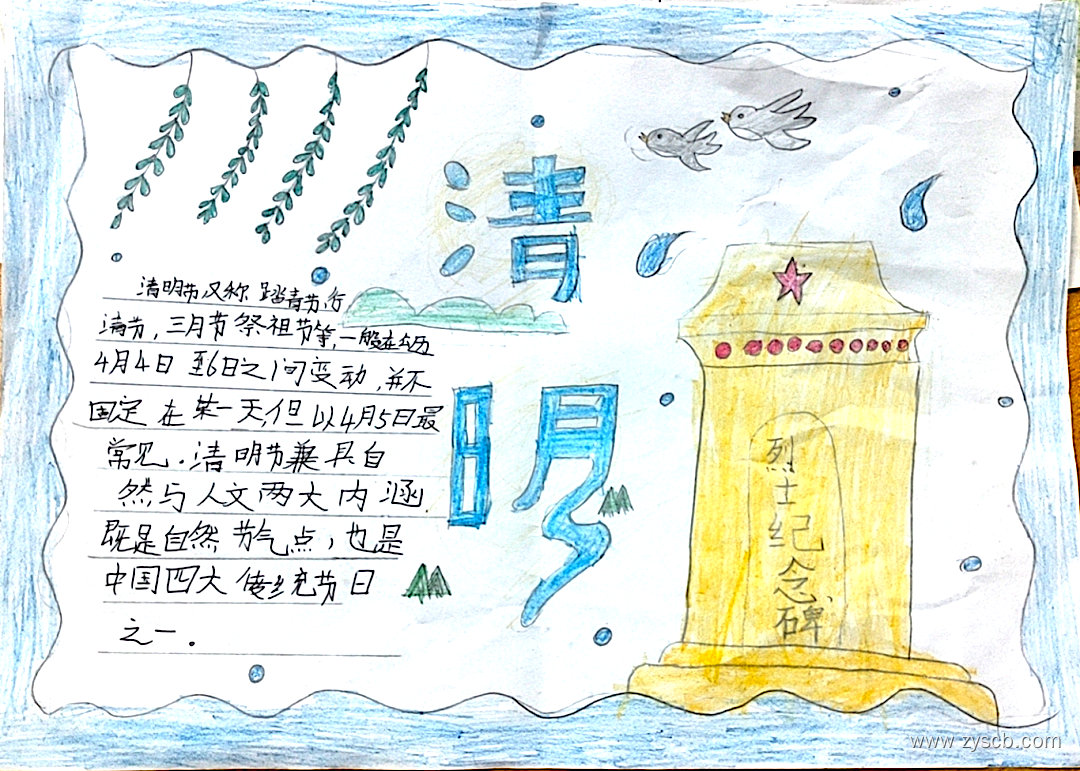 清明
清明节又称踏青节,行
清节,三月节祭祖节等,一般在公历
4月4日至6日之间变动,并不
固定在某一天,但以4月5日最
常见.清明节兼具自
然与人文两大内涵.
既是自然节气点,也是
中国四大传统节日
之一.
烈士纪念碑
www.zyscb.com